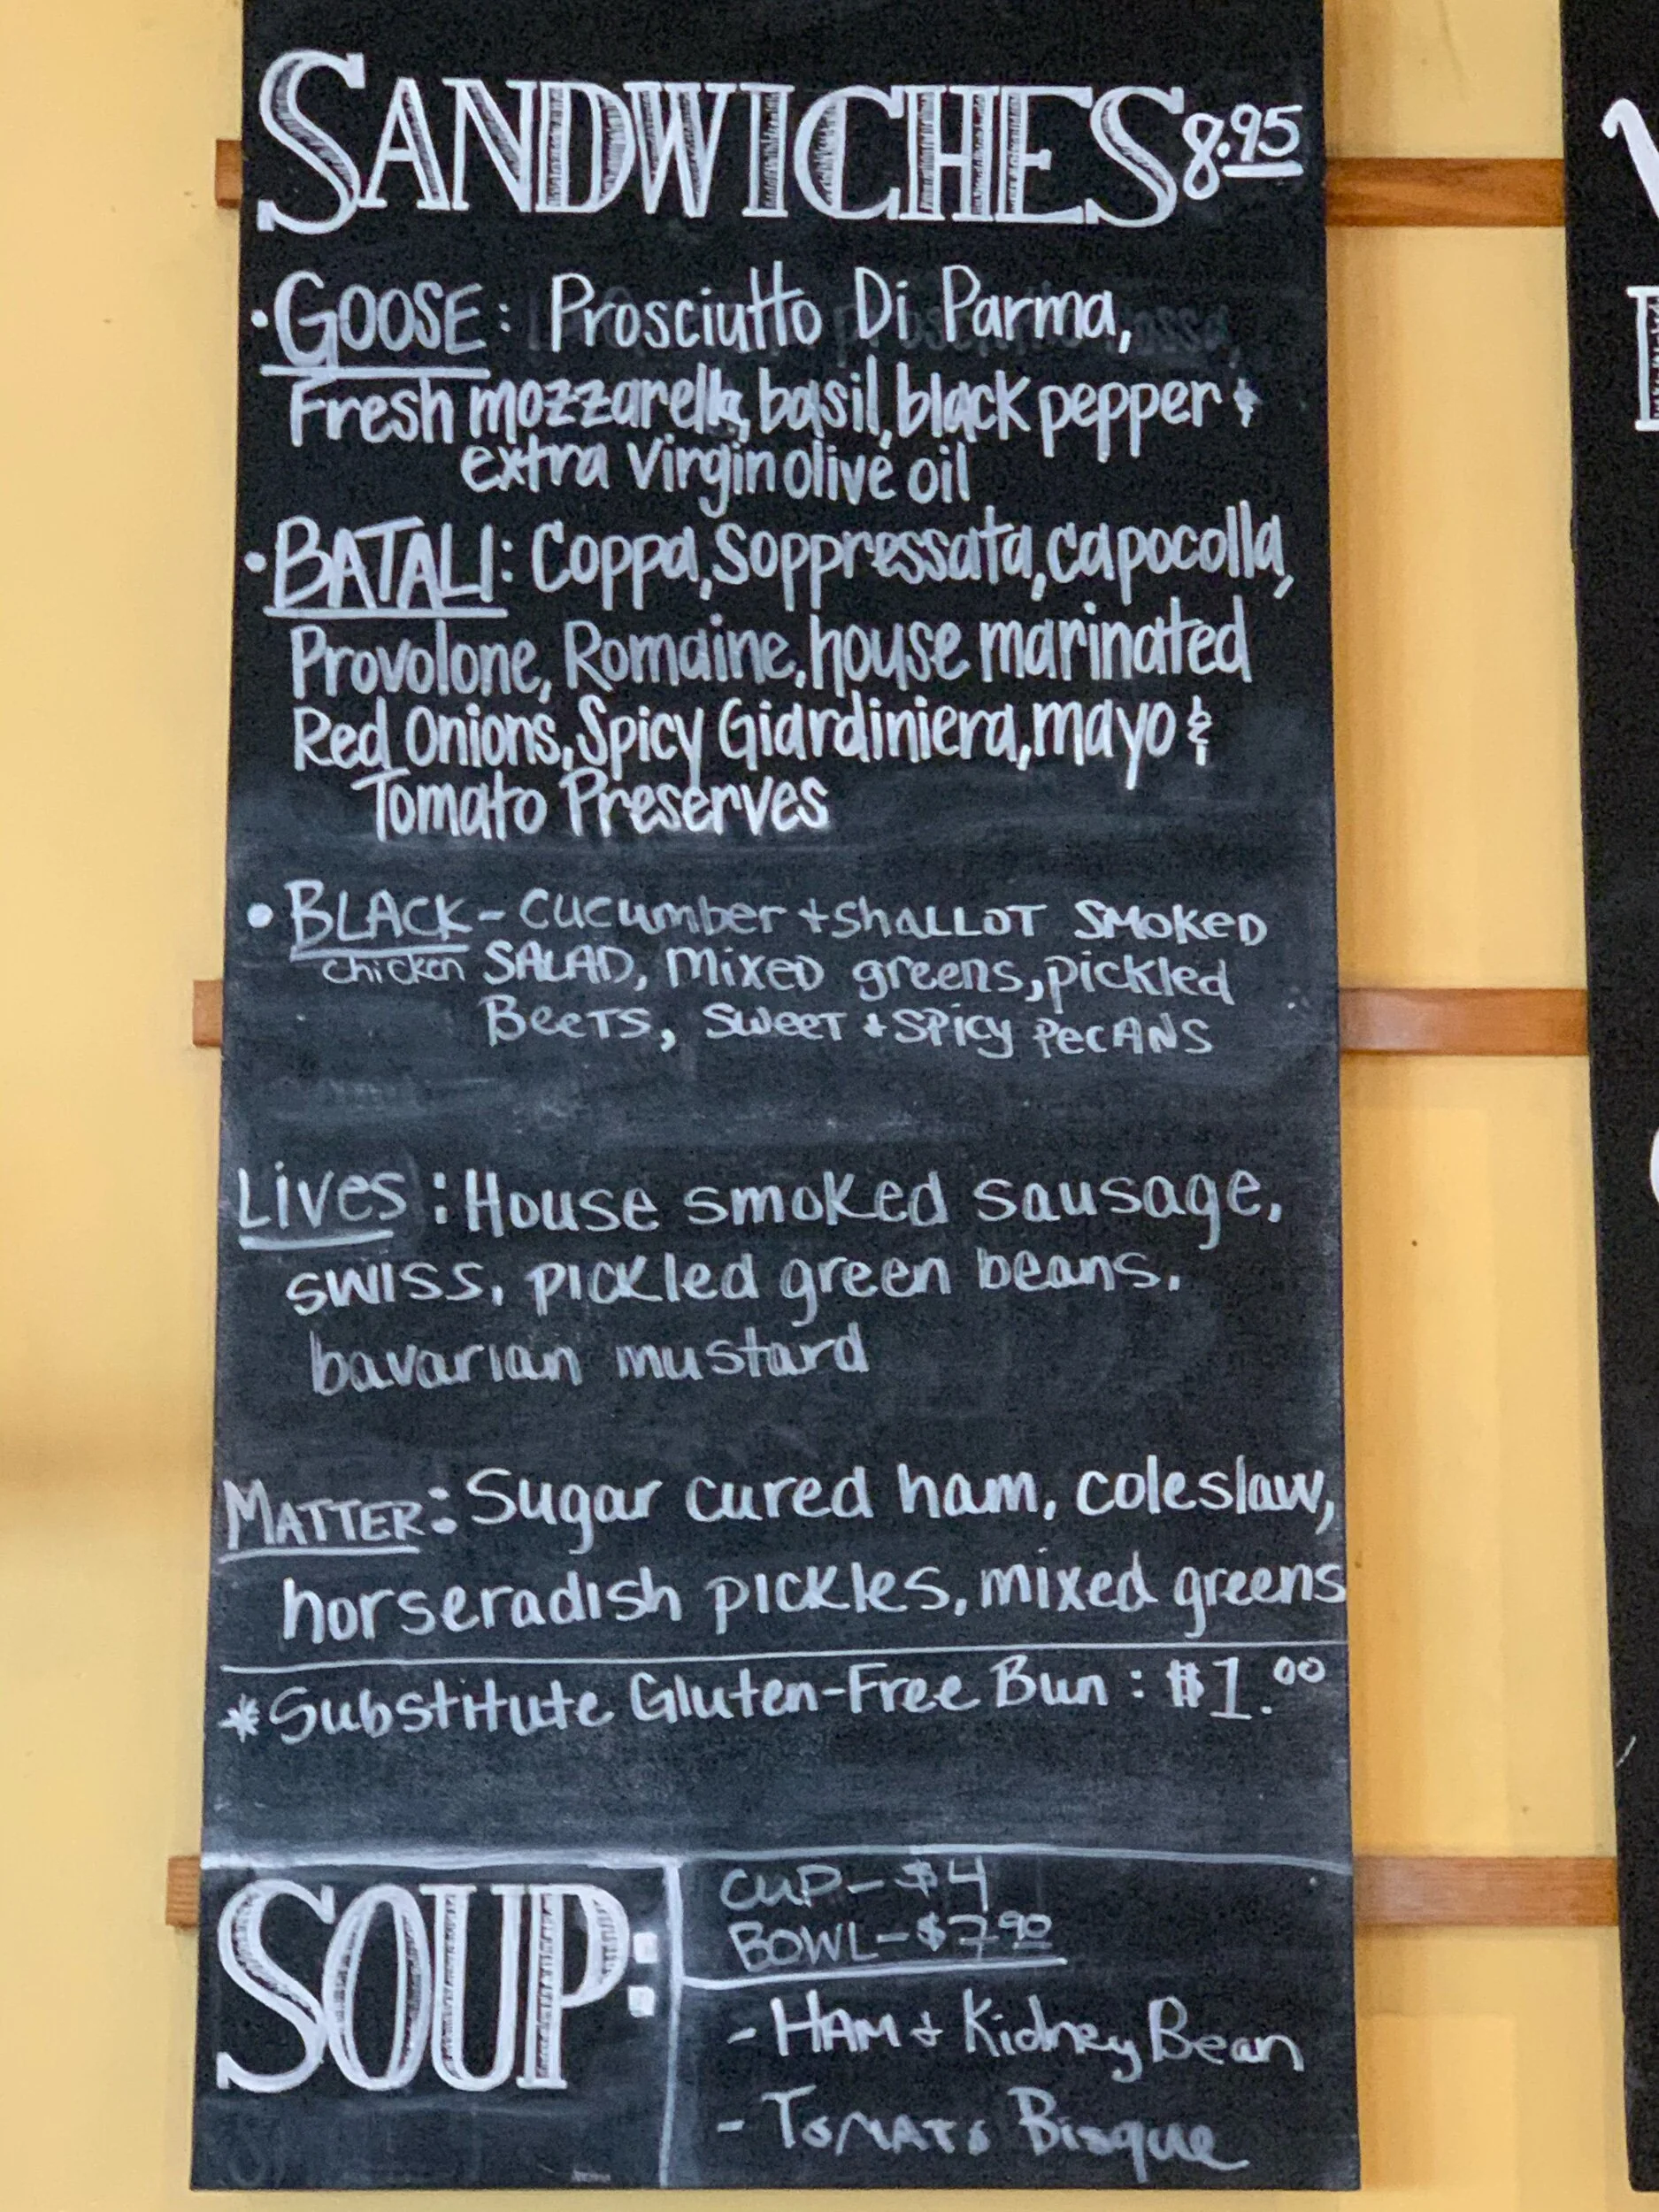 SANDWICHES 8.95
• GOOSE: Prosciutto Di Parma,
Fresh mozzarella, basil, black pepper &
extra Virgin olive oil
• BATALI: Coppa, Soppressata, capocolla,
Provolone, Romaine, house marinated
Red Onions, Spicy Giardiniera, mayo &
Tomato Preserves
• BLACK - cucumber + SHALLOT SMOKED
chicken SALAD, mixed greens, pickled
BeeTS, SweeT + SPicy PecANS
Lives: House smoked sausage,
swiss, pickled green beans,
bavarian mustard
MATTER: Sugar cured ham, coleslaw,
horseradish pickles, mixed greens
*Substitute Gluten-Free Bun: $1.00
SOUP:
CUP - $4
BOWL - $7.90
- HAM + Kidney Bean
- TOMATO Bisque